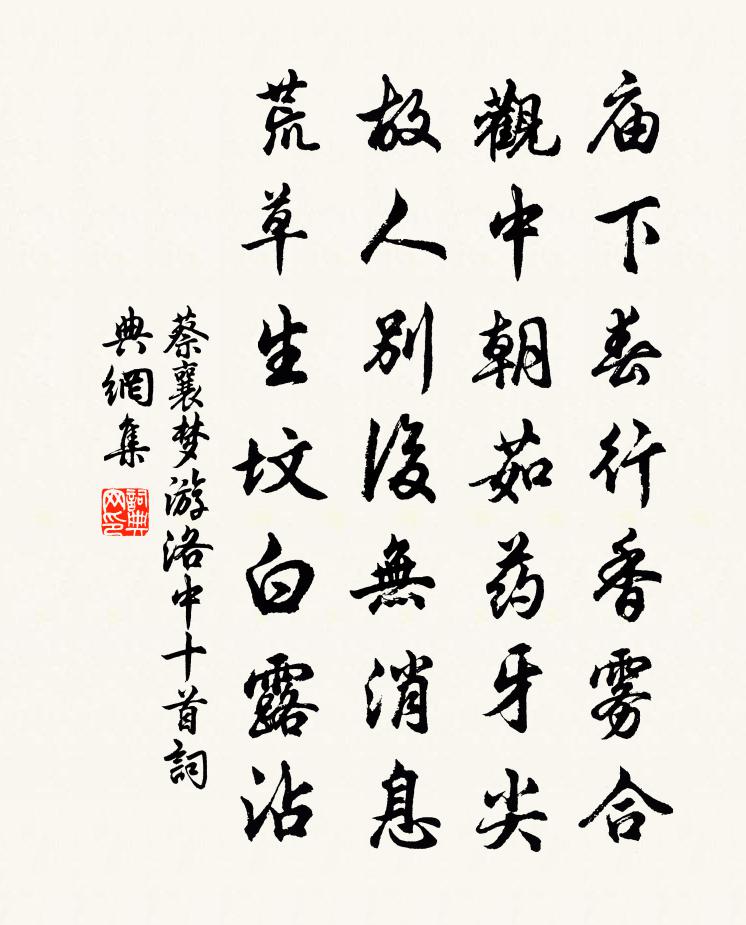 庙下春行香雾合
觀中朝茹药牙尖
故人别後無消息
荒草生坟白露沾
蔡襄梦游洛中十首詞
典網集
詞典
网印